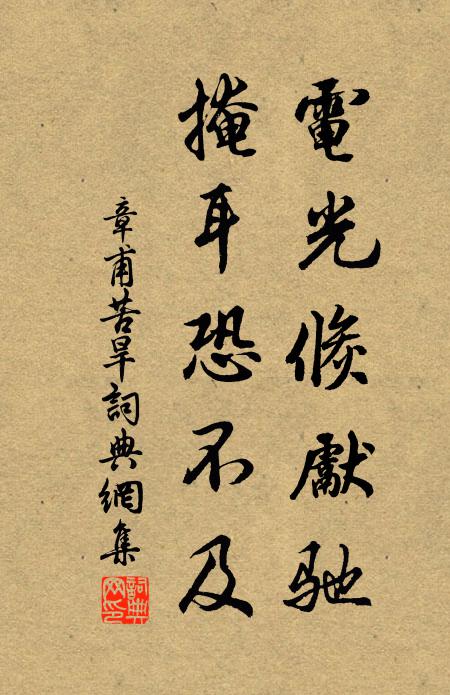 電光倐獻馳
掩耳恐不及
章甫苦旱詞典網集
詞典
网印